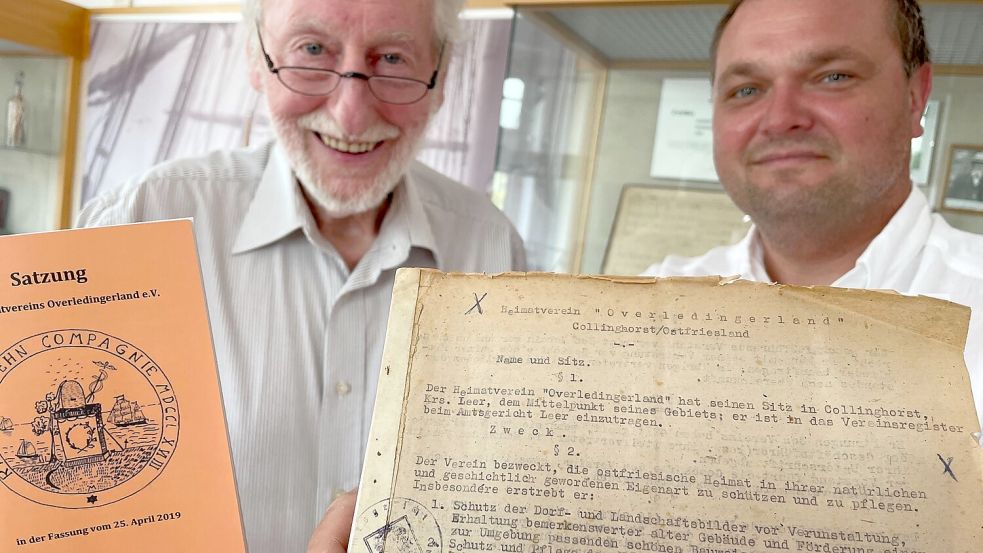 Satzung
tvereins Overledingerland e.V.
EHN COMPAGNIE MDCCLXVIII
in der Fassung vom 25. April 2019
X
Heimatverein "Overledingerland"
Collinghorst/Ostfriesland
-.-
Name und Sitz.
§ 1.
Der Heimatverein "Overledingerland" hat seinen Sitz in Collinghorst,
Krs. Leer, dem Mittelpunkt seines Gebiets; er ist in das Vereinsregister
beim Amtsgericht Leer einzutragen.
Zweck.
§ 2.
X
Der Verein bezweckt, die ostfriesische Heimat in ihrer natürlichen
und geschichtlich gewordenen Eigenart zu schützen und zu pflegen.
Insbesondere erstrebt er:
1. Schutz der Dorf- und Landschaftsbilder vor Verunstaltung,
Erhaltung bemerkenswerter alter Gebäude und Förderung
zur Umgebung passenden schönen
2. Schutz und Pflege